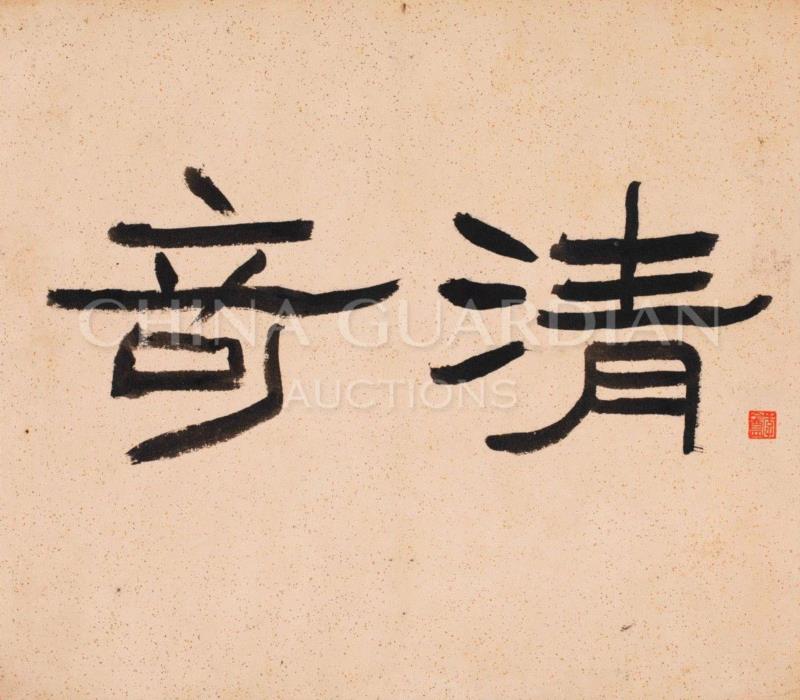 清竒
CHINA GUARDIAN
AUCTIONS